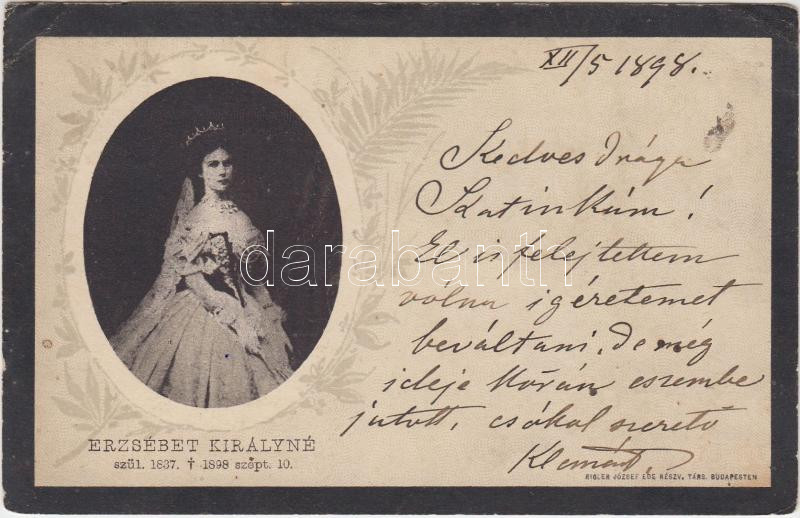 XII/5 1898.
Kedves Drága
Katinkám!
El is felejtettem
volna igéretemet
beváltani, de még
ideje korán eszembe
jutott, csókol szerető
ERZSÉBET KIRÁLYNÉ
szül. 1837. † 1898 szept. 10.
RIGLER JÓZSEF EDE RÉSZV. TÁRS. BUDAPESTEN
darabanth